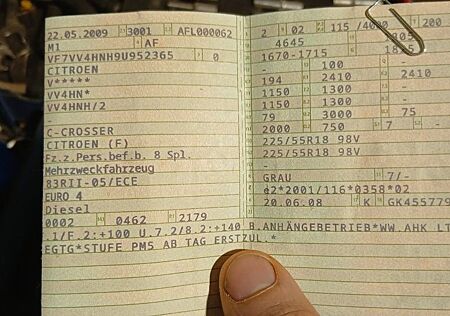 22.05.2009 3001 AFL000062
M1 AF
VF7VV4HNH9U952365 0
CITROEN
V*****
VV4HN*
VV4HNH/2
-
C-CROSSER
CITROEN (F)
Fz.z.Pers.bef.b. 8 Spl.
Mehrzweckfahrzeug
83RII-05/ECE
EURO 4
Diesel
0002 0462 2179
2 02 115 /4000 200
4645
1670-1715
- 100 -
194 2410 2410
1150 1300 -
1150 1300 -
79 3000 75
2000 750 7 -
225/55R18 98V
225/55R18 98V
-
GRAU 7/-
e2*2001/116*0358*02
20.06.08 K GK455779
.1/F.2:+100 U.7.2/8.2:+140 B.ANHÄNGEBETRIEB*WW.AHK LT
EGTG*STUFE PMS AB TAG ERSTZUL.*